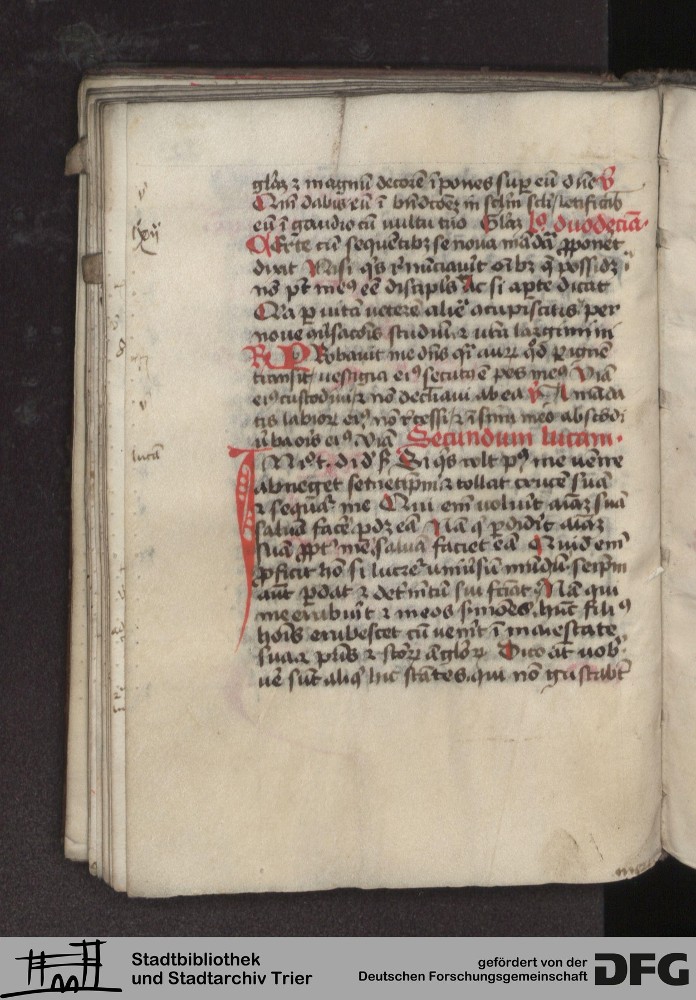 glãz ⁊ magnũ decorẽ ĩpones sup eũ dñe V̾
Qm̃ dabis eũ ĩ bñdictõez in sclm̃ scli / letificab
eũ ĩ gaudio cũ vultu tuo Glãz lo duodecĩa.
CErte cũ sequentibz se noua mãdã ꝓponet
dicit Nisi qͥs rẽnũciauit oĩbz q̃ possidz
nõ pt̃ meꝰ eẽ discipls̃ Ac si aperte dicat
Qui p vitã veterẽ aliẽ
noue studiũ ⁊ vrã largimini
R̾ PRobauit me dñs qͥ aurũ qd̃ p ignẽ
transit / vestigia eiꝰ secutꝰ ẽ pes meꝰ viã
eiꝰ custodiui / ⁊ nõ declinaui ab ea V̾ A mãda
tis labiorũ eiꝰ nõ recessi / ⁊ ĩ sinu meo abscõdi
ũba oris eiꝰ Viã Secundum lucam.
lucã
IN i. t. d. ĩ. d. s̃. Si qͥs volt pꝰ me venire
abneget semetip̃m ⁊ tollat crucẽ suã
⁊ sequaͬ me Qui em̃ voluit aĩaz suã
saluã facẽ pdz eã Nã qͥ pdidit aĩaz
suã ꝓpt̃ me / saluã faciet eã Quid em̃
ꝓficit hõ si lucreͬ vniũsũ mũdũ seip̃m
aũt pdat ⁊ detͥmẽtũ sui fciat Nã qui
me erubuit ⁊ meos smões. hũc filiꝰ
hoĩs erubescet cũ venit ĩ maiestate
sua ⁊ pr̃is ⁊ sctõr ãglõr Dico aũt vob
ve sũt aliq̃ hic stãtes. qui nõ gustabt̃
Stadtbibliothek
und Stadtarchiv Trier
gefördert von der
Deutschen Forschungsgemeinschaft
DFG